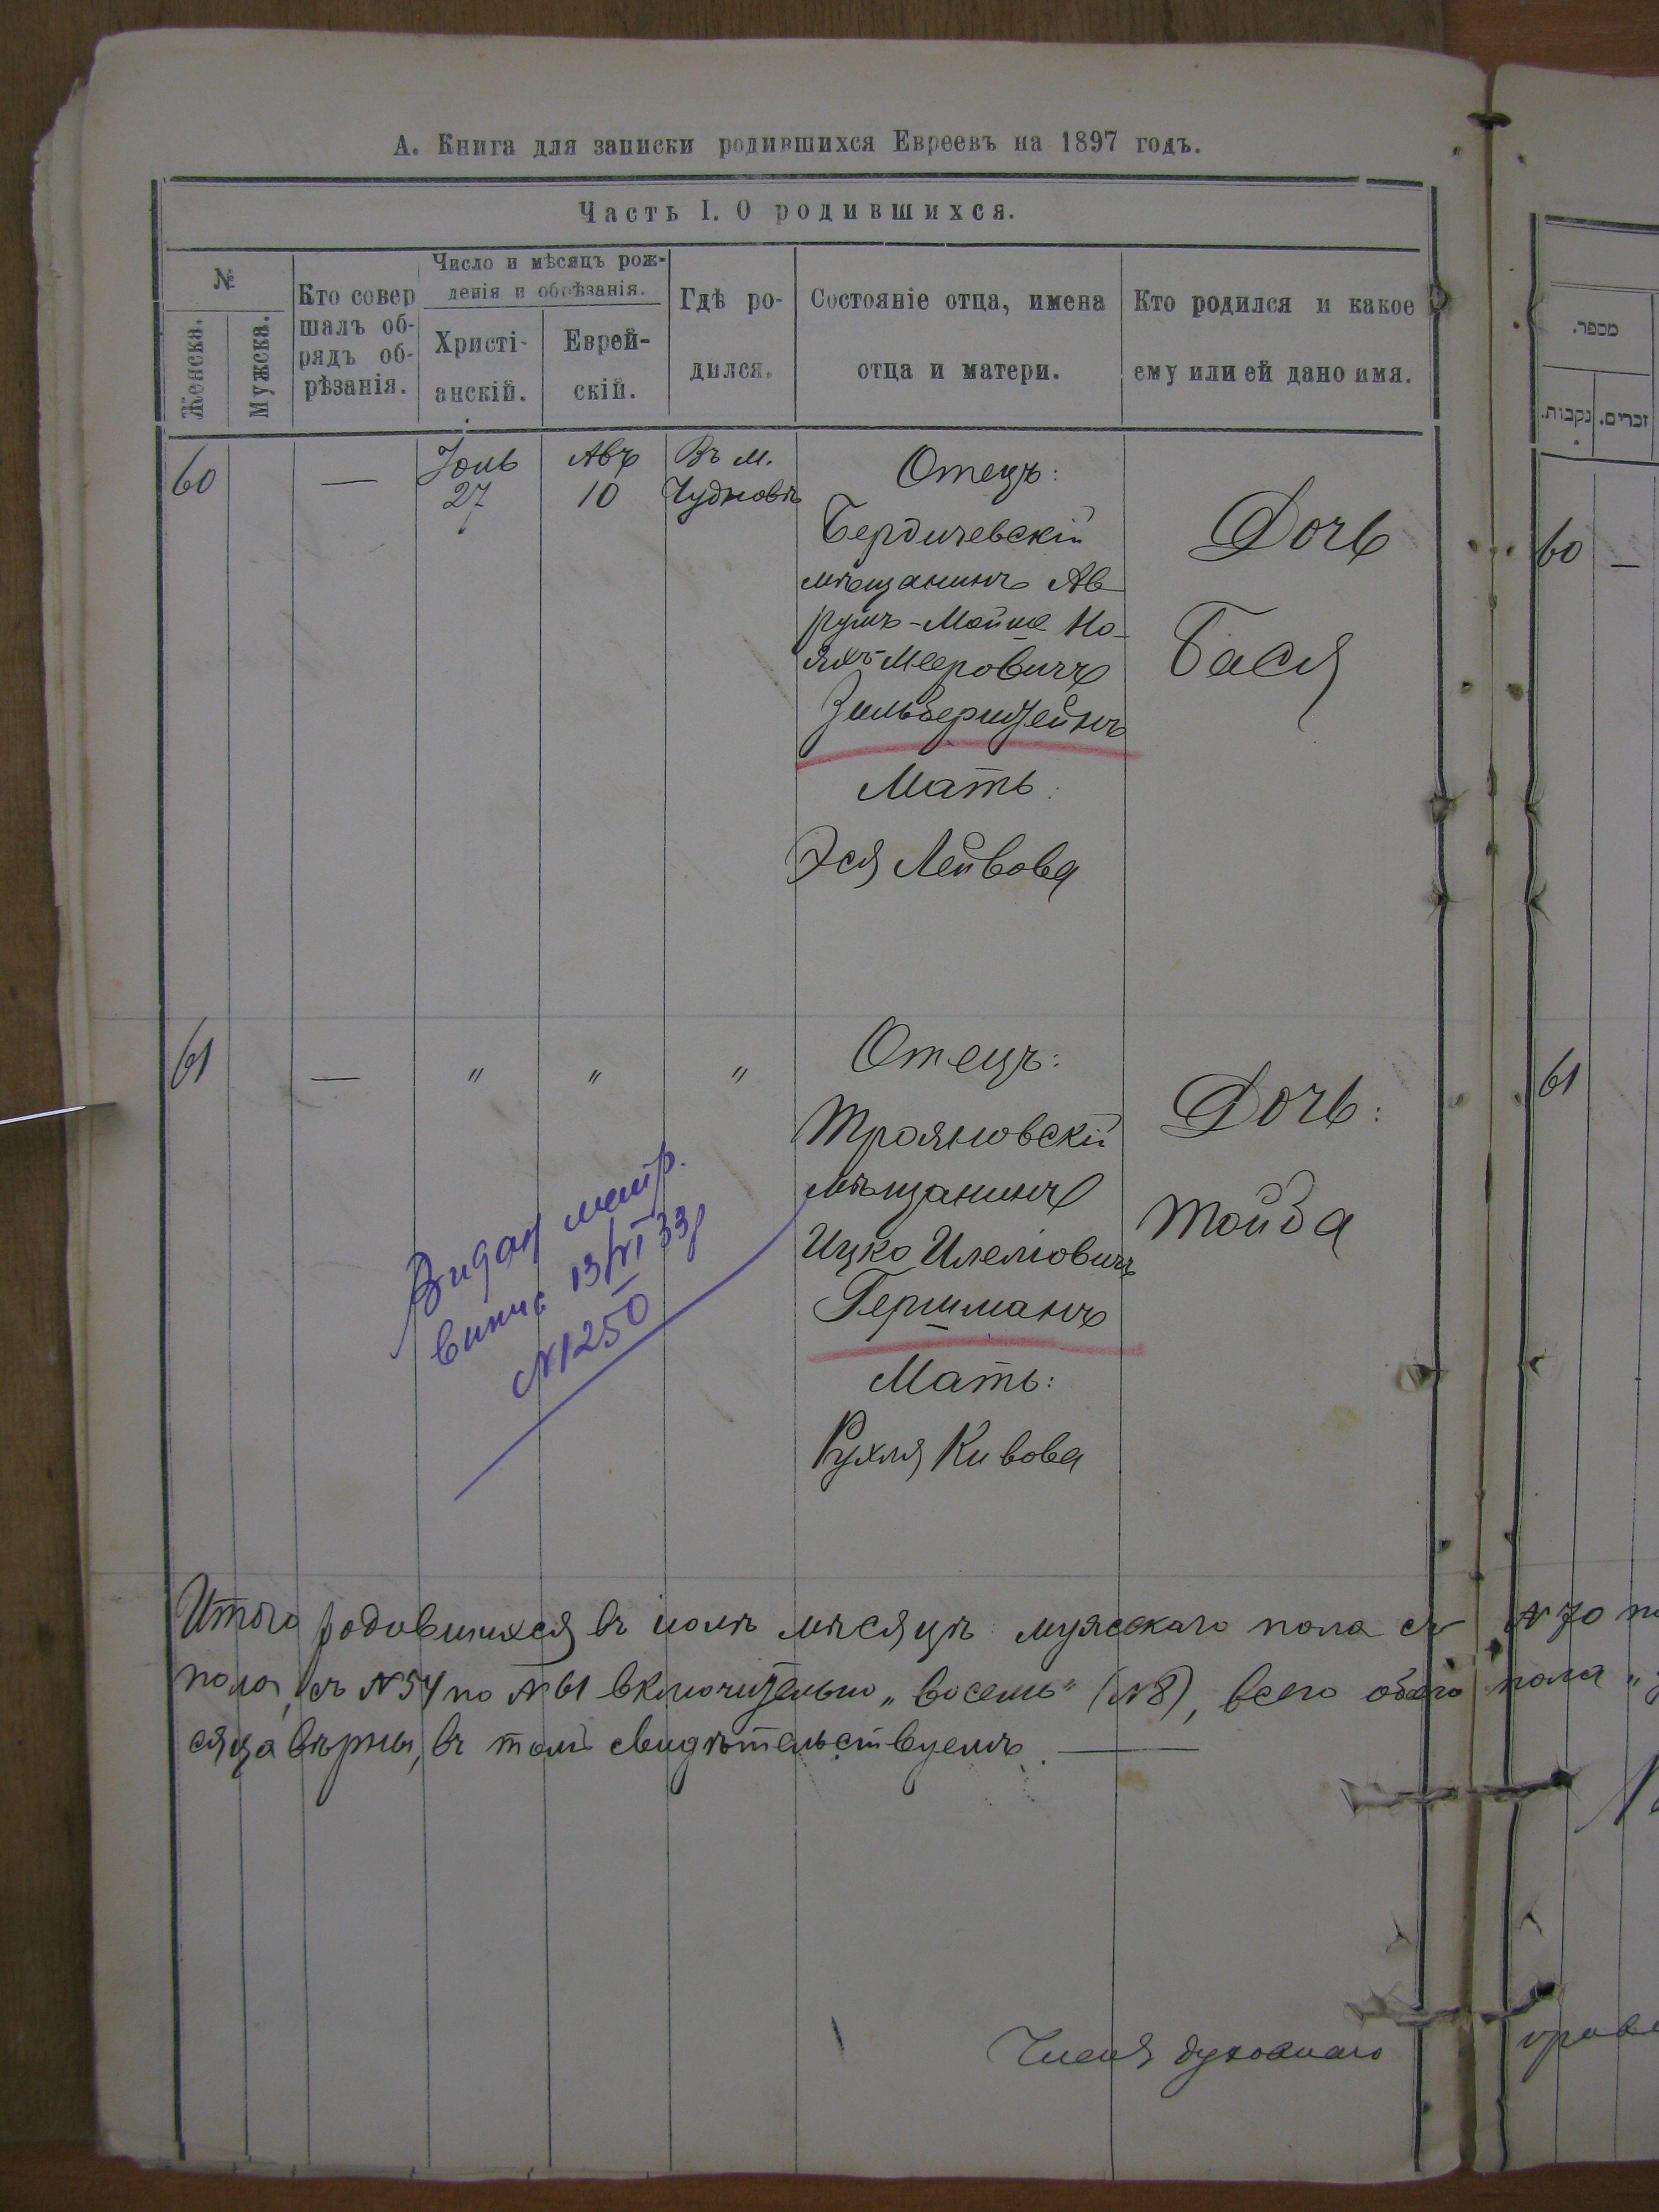 А. Книга для записки родившихся Евреевъ на 1897 годъ.
Часть I. О родившихся.
№
Женска.
Мужска.
Кто совер
шалъ об-
рядъ об-
рѣзанія.
Число и мѣсяцъ рож-
денія и обрѣзанія.
Христі-
анскій.
Еврей-
скій.
Гдѣ ро-
дился.
Состояніе отца, имена
отца и матери.
Кто родился и какое
ему или ей дано имя.
60
—
Іюль
27
Авъ
10
Въ м.
Чудновѣ
Отецъ:
Бердичевскій
мѣщанинъ Ав-
румъ-Мойше Но-
яхъ-Мееровичъ
Зильберштейнъ
Мать:
Эся Лейбова
Дочь
Бася
61
—
"
"
"
Отецъ:
Трояновскій
мѣщанинъ
Ицко
Гершманъ
Мать:
Рухля Кивова
Дочь:
Тойба
Видан метр.
13/VI 33р
№1250
Итого родившихся въ іюлѣ мѣсяцѣ мужескаго пола съ №70 по
пола, съ №54 по №61 включительно „восемь" (№8), всего обоего пола „
сяца вѣрны, въ томъ свидѣтельствуемъ. —
Члены духовнаго
מספר.
נקבות.
זכרים.
60 —
61